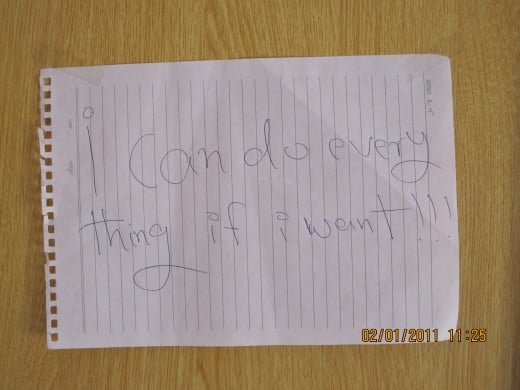 i can do every
thing if i want!!!
02/01/2011 11:25